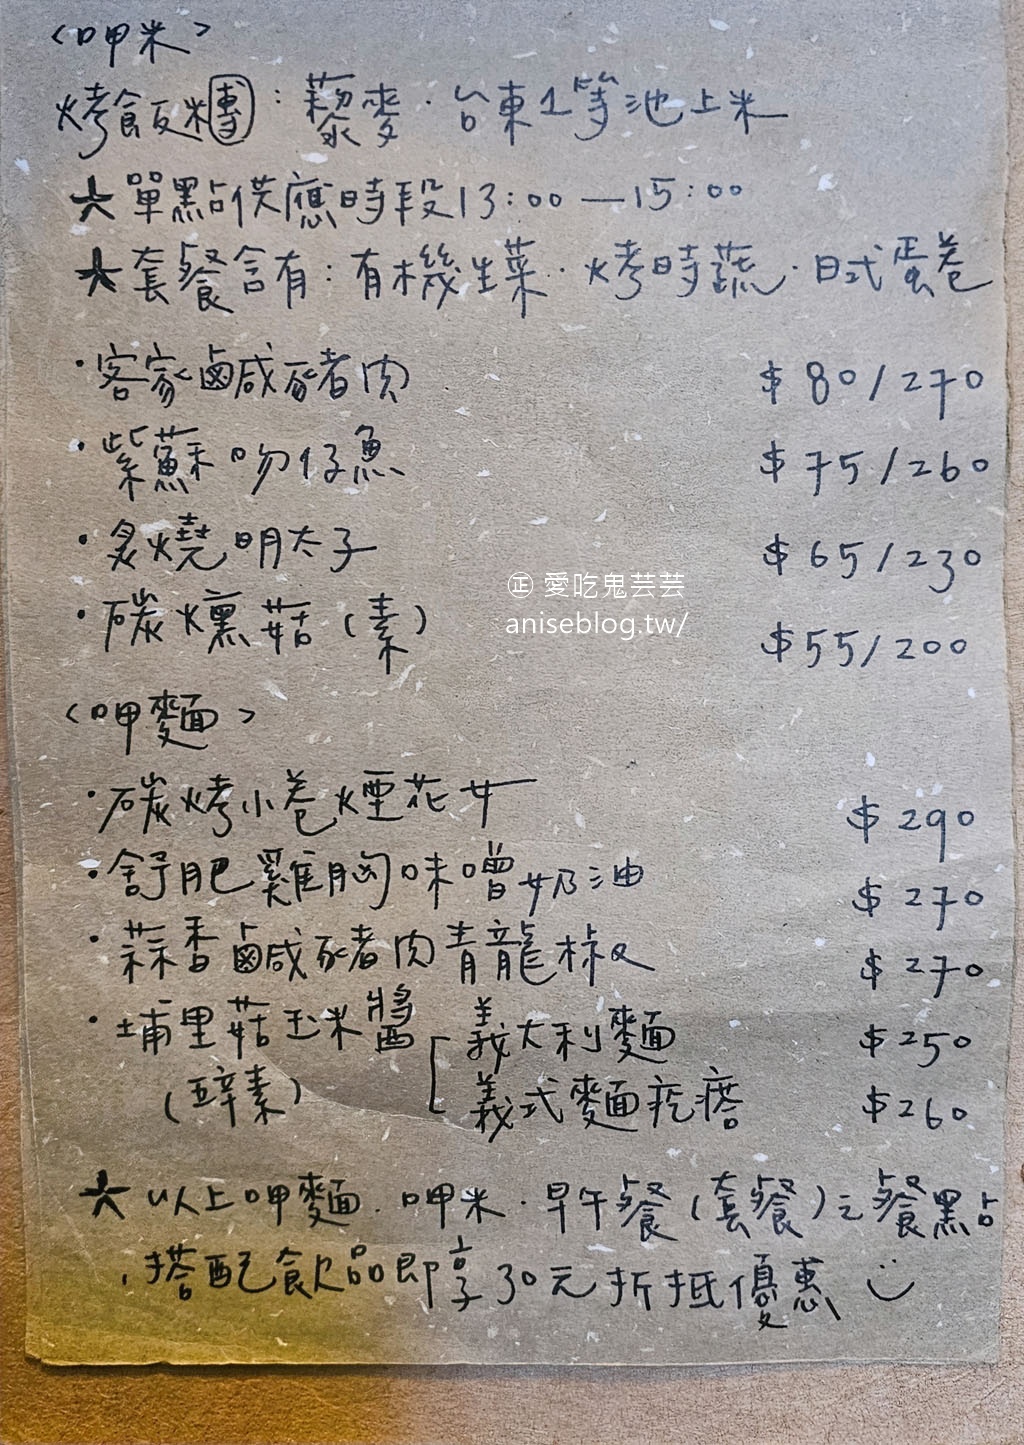 <呷米>
烤飯糰：藜麥．台東1等池上米
★單點供應時段13:00—15:00
★套餐含有：有機生菜．烤時蔬．日式蛋卷
・客家鹹豬肉 $80/270
・紫蘇吻仔魚 $75/260
・炙燒明太子 $65/230
・碳燻菇(素) $55/200
㊣ 愛吃鬼芸芸
aniseblog.tw/
<呷麵>
・碳烤小卷煙花女 $290
・舒肥雞胸味噌奶油 $270
・蒜香鹹豬肉青龍椒 $270
・埔里菇玉米醬 義大利麵 $250
(五辛素) 義式麵疙瘩 $260
★以上呷麵．呷米．早午餐(套餐)之餐點
，搭配飲品即享30元折抵優惠